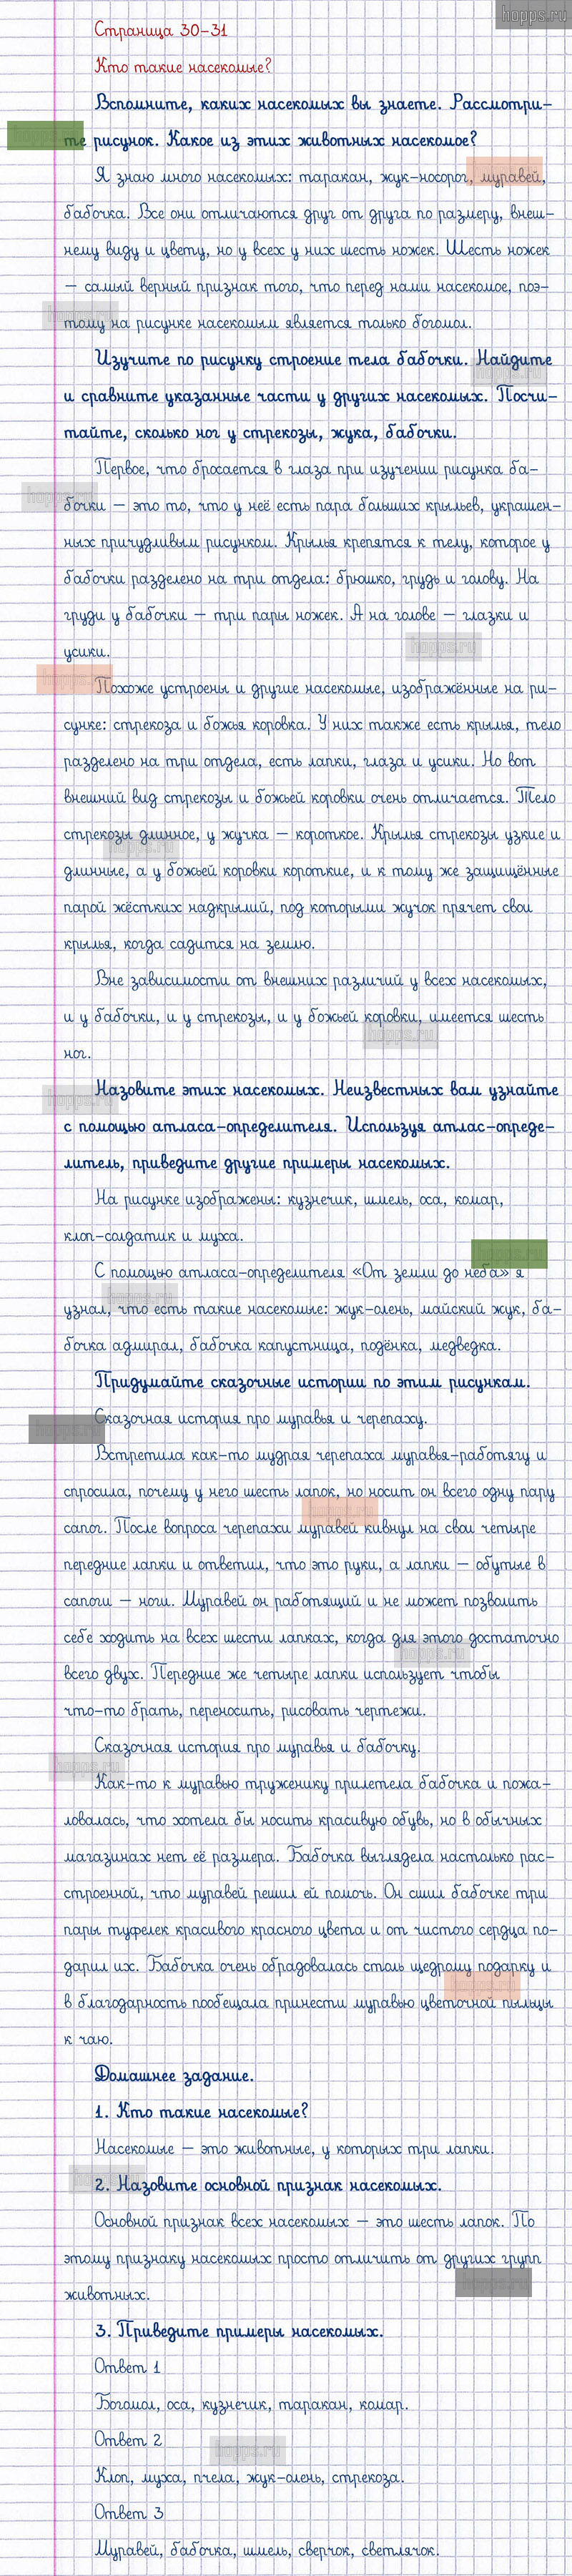 hopps.ru
Страница 30-31
Кто такие насекомые?
Вспомните, каких насекомых вы знаете. Рассмотри-
те рисунок. Какое из этих животных насекомое?
Я знаю много насекомых: таракан, жук-носорог, муравей,
бабочка. Все они отличаются друг от друга по размеру, внеш-
нему виду и цвету, но у всех у них шесть ножек. Шесть ножек
— самый верный признак того, что перед нами насекомое, поэ-
тому на рисунке насекомым является только богомол.
Изучите по рисунку строение тела бабочки. Найдите
и сравните указанные части у других насекомых. Посчи-
тайте, сколько ног у стрекозы, жука, бабочки.
Первое, что бросается в глаза при изучении рисунка ба-
бочки — это то, что у неё есть пара больших крыльев, украшен-
ных причудливым рисунком. Крылья крепятся к телу, которое у
бабочки разделено на три отдела: брюшко, грудь и голову. На
груди у бабочки — три пары ножек. А на голове — глазки и
усики.
Похоже устроены и другие насекомые, изображённые на ри-
сунке: стрекоза и божья коровка. У них также есть крылья, тело
разделено на три отдела, есть лапки, глаза и усики. Но вот
внешний вид стрекозы и божьей коровки очень отличается. Тело
стрекозы длинное, у жучка — короткое. Крылья стрекозы узкие и
длинные, а у божьей коровки короткие, и к тому же защищённые
парой жёстких надкрылий, под которыми жучок прячет свои
крылья, когда садится на землю.
Вне зависимости от внешних различий у всех насекомых,
и у бабочки, и у стрекозы, и у божьей коровки, имеется шесть
ног.
Назовите этих насекомых. Неизвестных вам узнайте
с помощью атласа-определителя. Используя атлас-опреде-
литель, приведите другие примеры насекомых.
На рисунке изображены: кузнечик, шмель, оса, комар,
клоп-солдатик и муха.
С помощью атласа-определителя «От земли до неба» я
узнал, что есть такие насекомые: жук-олень, майский жук, ба-
бочка адмирал, бабочка капустница, подёнка, медведка.
Придумайте сказочные истории по этим рисункам.
Сказочная история про муравья и черепаху.
Встретила как-то мудрая черепаха муравья-работягу и
спросила, почему у него шесть лапок, но носит он всего одну пару
сапог. После вопроса черепахи муравей кивнул на свои четыре
передние лапки и ответил, что это руки, а лапки — обутые в
сапоги — ноги. Муравей он работящий и не может позволить
себе ходить на всех шести лапках, когда для этого достаточно
всего двух. Передние же четыре лапки использует чтобы
что-то брать, переносить, рисовать чертежи.
Сказочная история про муравья и бабочку.
Как-то к муравью труженику прилетела бабочка и пожа-
ловалась, что хотела бы носить красивую обувь, но в обычных
магазинах нет её размера. Бабочка выглядела настолько рас-
строенной, что муравей решил ей помочь. Он сшил бабочке три
пары туфелек красивого красного цвета и от чистого сердца по-
дарил их. Бабочка очень обрадовалась столь щедрому подарку и
в благодарность пообещала принести муравью цветочной пыльцы
к чаю.
Домашнее задание.
1. Кто такие насекомые?
Насекомые — это животные, у которых три лапки.
2. Назовите основной признак насекомых.
Основной признак всех насекомых — это шесть лапок. По
этому признаку насекомых просто отличить от других групп
животных.
3. Приведите примеры насекомых.
Ответ 1
Богомол, оса, кузнечик, таракан, комар.
Ответ 2
Клоп, муха, пчела, жук-олень, стрекоза.
Ответ 3
Муравей, бабочка, шмель, сверчок, светлячок.